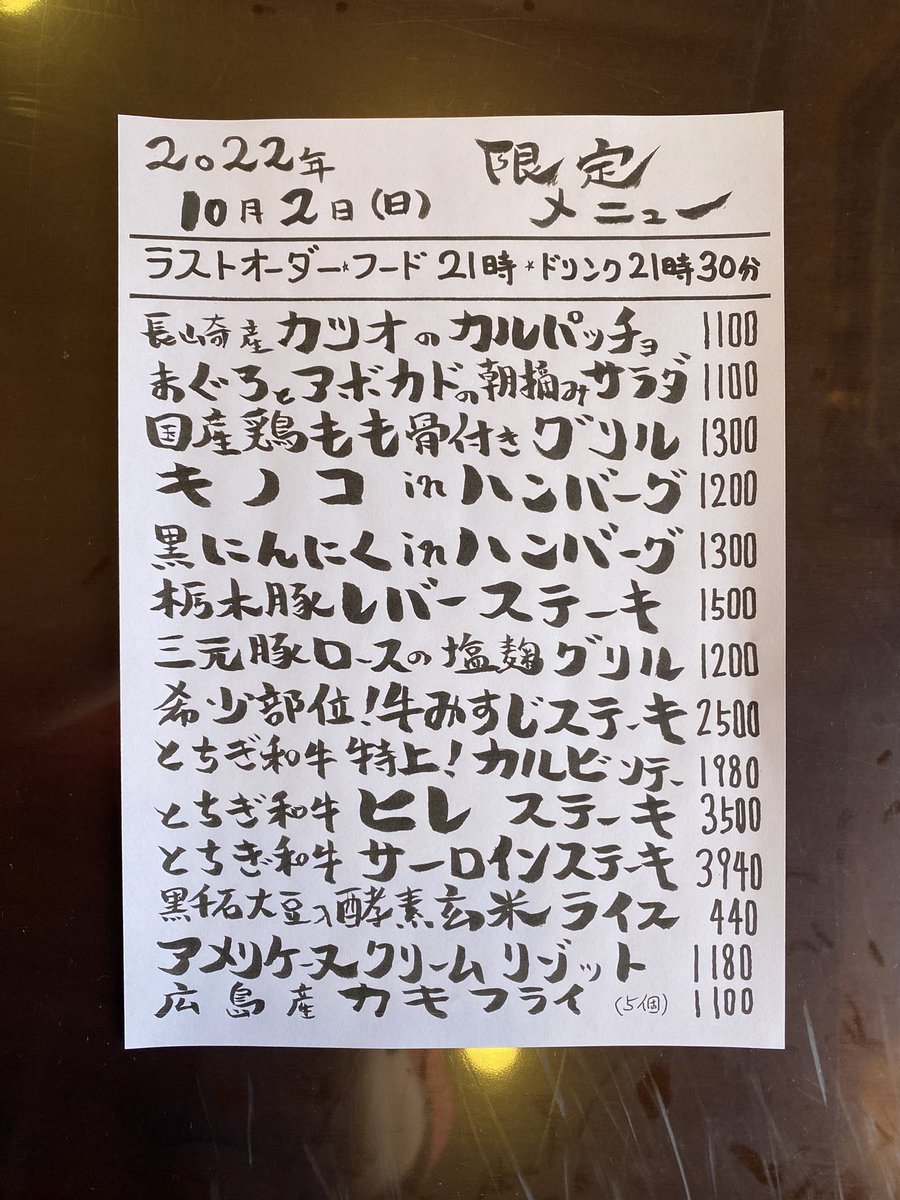 2022年
10月2日(日)
限定
メニュー
ラストオーダー☆フード 21時☆ドリンク21時30分
長崎産 カツオのカルパッチョ 1100
まぐろとアボカドの朝摘みサラダ 1100
国産鶏もも骨付きグリル 1300
キノコ in ハンバーグ 1200
黒にんにく in ハンバーグ 1300
栃木豚レバーステーキ 1500
三元豚ロースの塩麹グリル 1200
希少部位!牛みすじステーキ 2500
とちぎ和牛特上!カルビソテー 1980
とちぎ和牛ヒレステーキ 3500
とちぎ和牛サーロインステーキ 3940
黒千石大豆入酵素玄米ライス 440
アメリケーヌクリームリゾット 1180
広島産カキフライ(5個) 1100